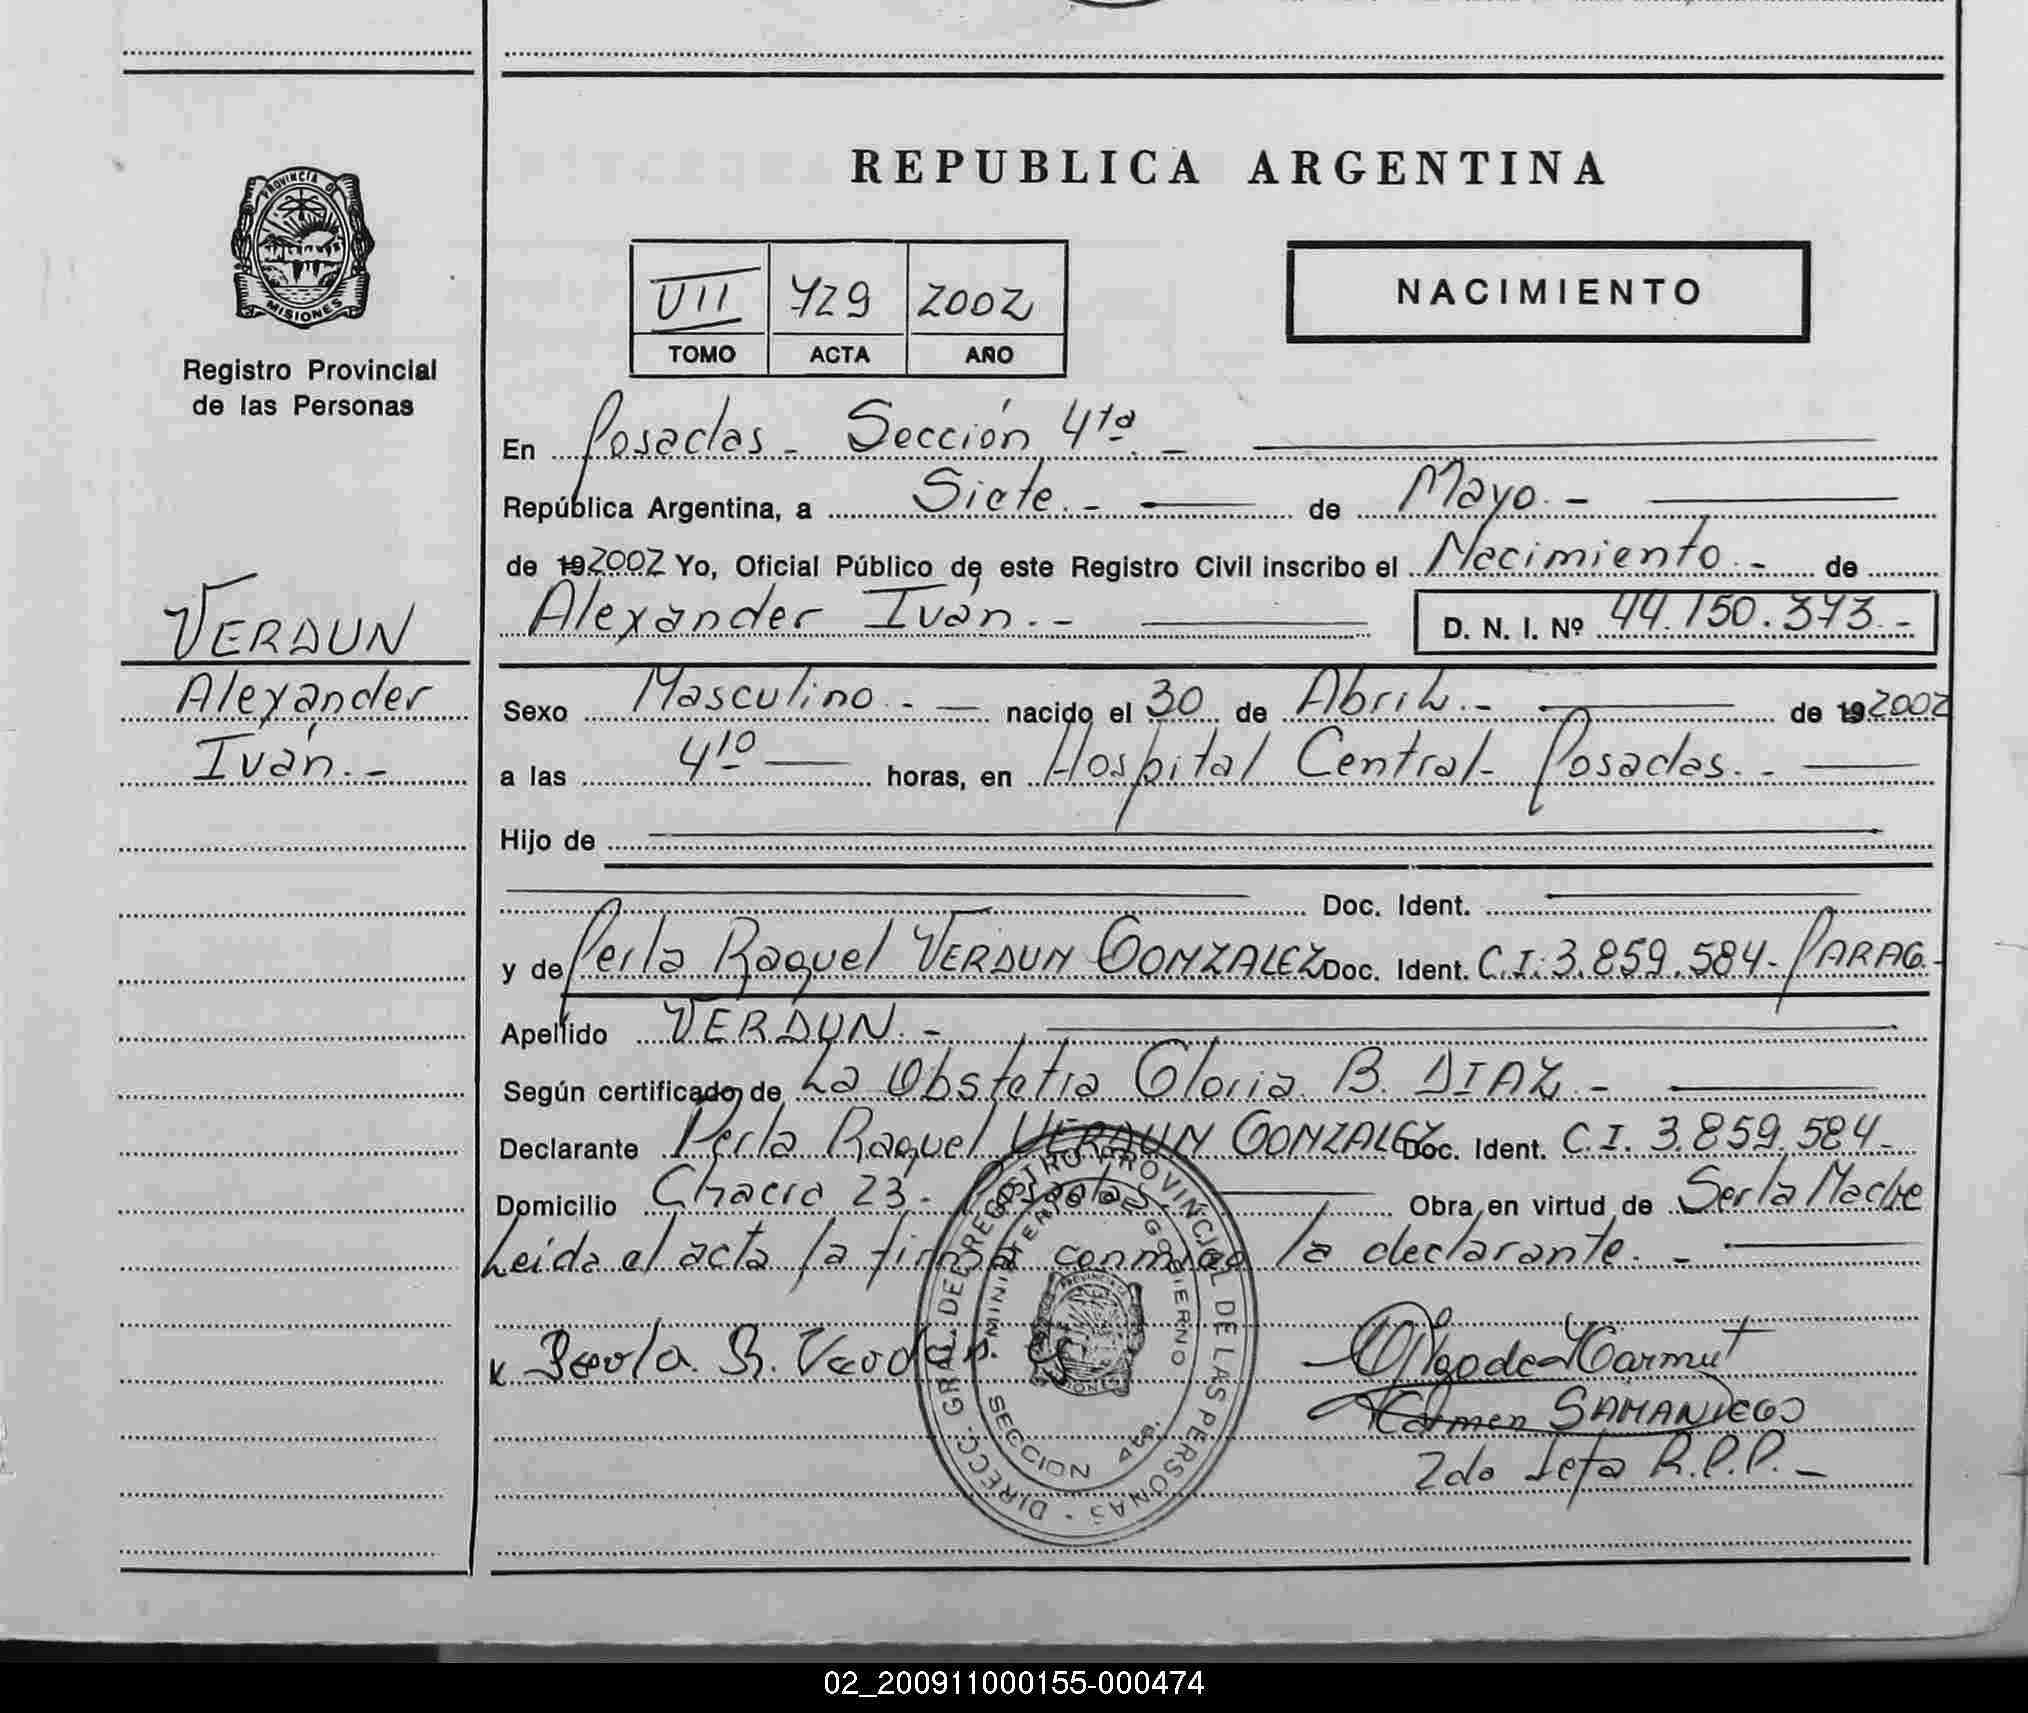 REPUBLICA ARGENTINA
PROVINCIA D
MISIONES
Registro Provincial
de las Personas
VII 729 2002
TOMO ACTA AÑO
NACIMIENTO
En Posadas - Sección 4ta. -
República Argentina, a Siete. - de Mayo. -
de 19 2002 Yo, Oficial Público de este Registro Civil inscribo el Nacimiento. - de
Alexander Iván. - D. N. I. Nº 44.150.373. -
VERDUN
Alexander
Iván. -
Sexo Masculino. - nacido el 30 de Abril. - de 19 2002
a las 4 10 horas, en Hospital Central - Posadas. -
Hijo de
Doc. Ident.
y de Perla Raquel VERDUN GONZALEZ Doc. Ident. C.I: 3.859.584 - PARAG. -
Apellido VERDUN. -
Según certificado de La Obstetra Gloria B. DIAZ. -
Declarante Perla Raquel VERDUN GONZALEZ Doc. Ident. C.I. 3.859.584 -
Domicilio Chacra 23 - Posadas. Obra en virtud de Ser la Madre
Leida el acta la firma conmigo la declarante. -
x Perla. R. Verdun G
Carmen SAMANIEGO
2do Jefa R.P.P. -
DIRECC. GRAL. DEL REGISTRO PROVINCIAL DE LAS PERSONAS
MINISTERIO DE GOBIERNO
SECCION 4ta.
02_200911000155-000474